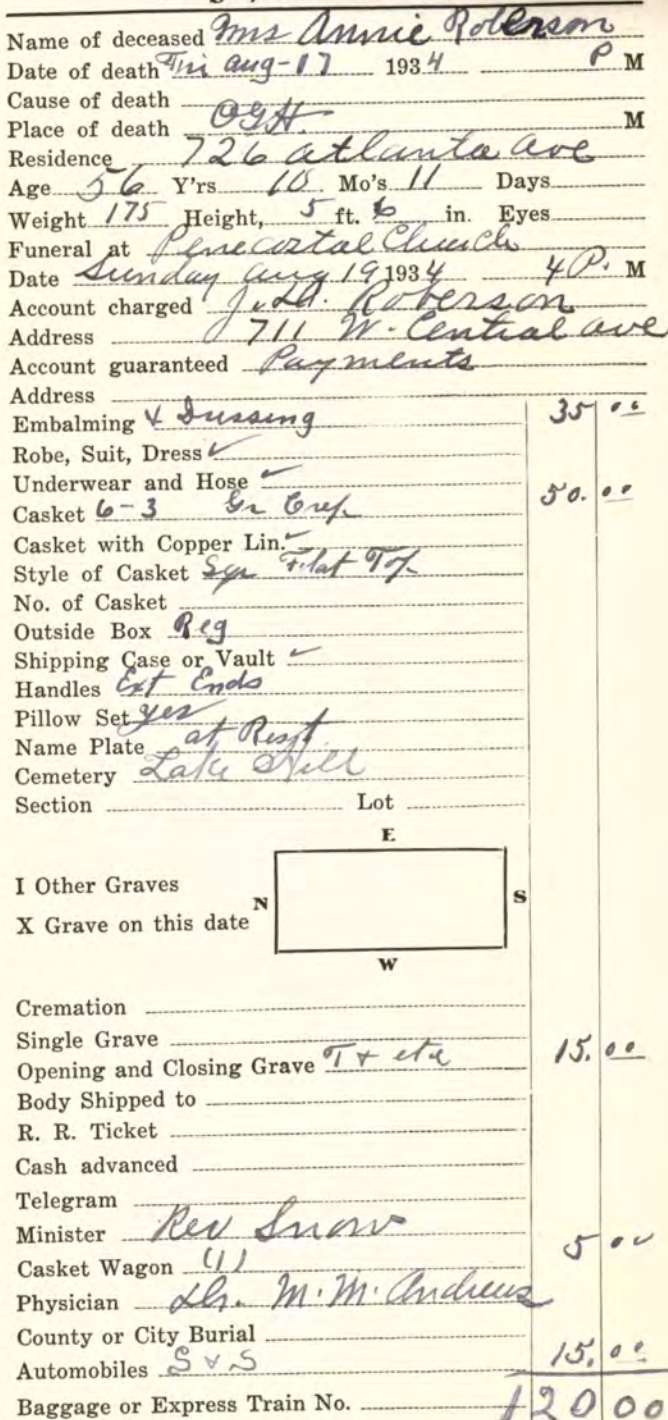 Name of deceased Mrs Annie Roberson
Date of death Fri Aug-17 1934 P M
Cause of death
Place of death OGH. M
Residence 726 Atlanta Ave
Age 56 Y'rs 10 Mo's 11 Days
Weight 175 Height, 5 ft. 6 in. Eyes
Funeral at Penecostal Church
Date Sunday Aug 19 1934 4 P. M
Account charged Roberson
Address 711 W. Central ave
Account guaranteed Payments
Address
Embalming & Dressing 35 00
Robe, Suit, Dress ✓
Underwear and Hose ✓
Casket 6-3 Gr Crep 50.00
Casket with Copper Lin. ✓
Style of Casket Sqr Flat Top
No. of Casket
Outside Box Reg
Shipping Case or Vault ✓
Handles Ext Ends
Pillow Set yes
Name Plate at Rest
Cemetery Lake Hill
Section Lot
E
I Other Graves
N S
X Grave on this date
W
Cremation
Single Grave
Opening and Closing Grave T & etc 15.00
Body Shipped to
R. R. Ticket
Cash advanced
Telegram
Minister Rev Snow
Casket Wagon (1) 5 00
Physician Dr. M. M. Andrews
County or City Burial
Automobiles S & S 15.00
Baggage or Express Train No. 120 00